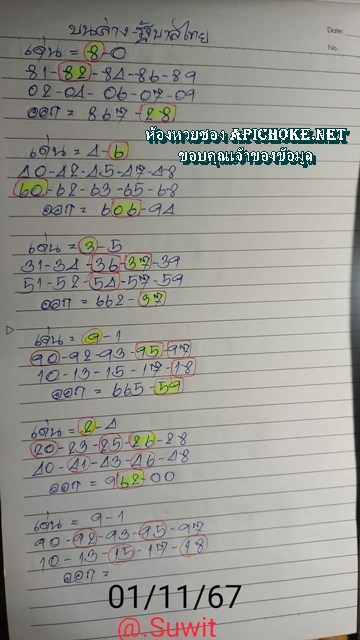 บนล่าง-รัฐบาลไทย
Date:
No.
เด่น = 8-0
81-82-84-86-89
02-04-06-07-09
ออก = 867-28
ห้องหวยซอง APICHOKE.NET
ขอบคุณเจ้าของข้อมูล
เด่น = 4-6
40-42-45-47-48
60-62-63-65-68
ออก = 606-94
เด่น = 3-5
31-34-36-37-39
51-52-54-57-59
ออก = 662-37
เด่น = 9-1
90-92-93-95-97
10-13-15-17-18
ออก = 665-59
เด่น = 2-4
20-23-25-26-28
40-41-43-46-48
ออก = 962-00
เด่น = 9-1
90-92-93-95-97
10-13-15-17-18
ออก =
01/11/67
@.Suwit